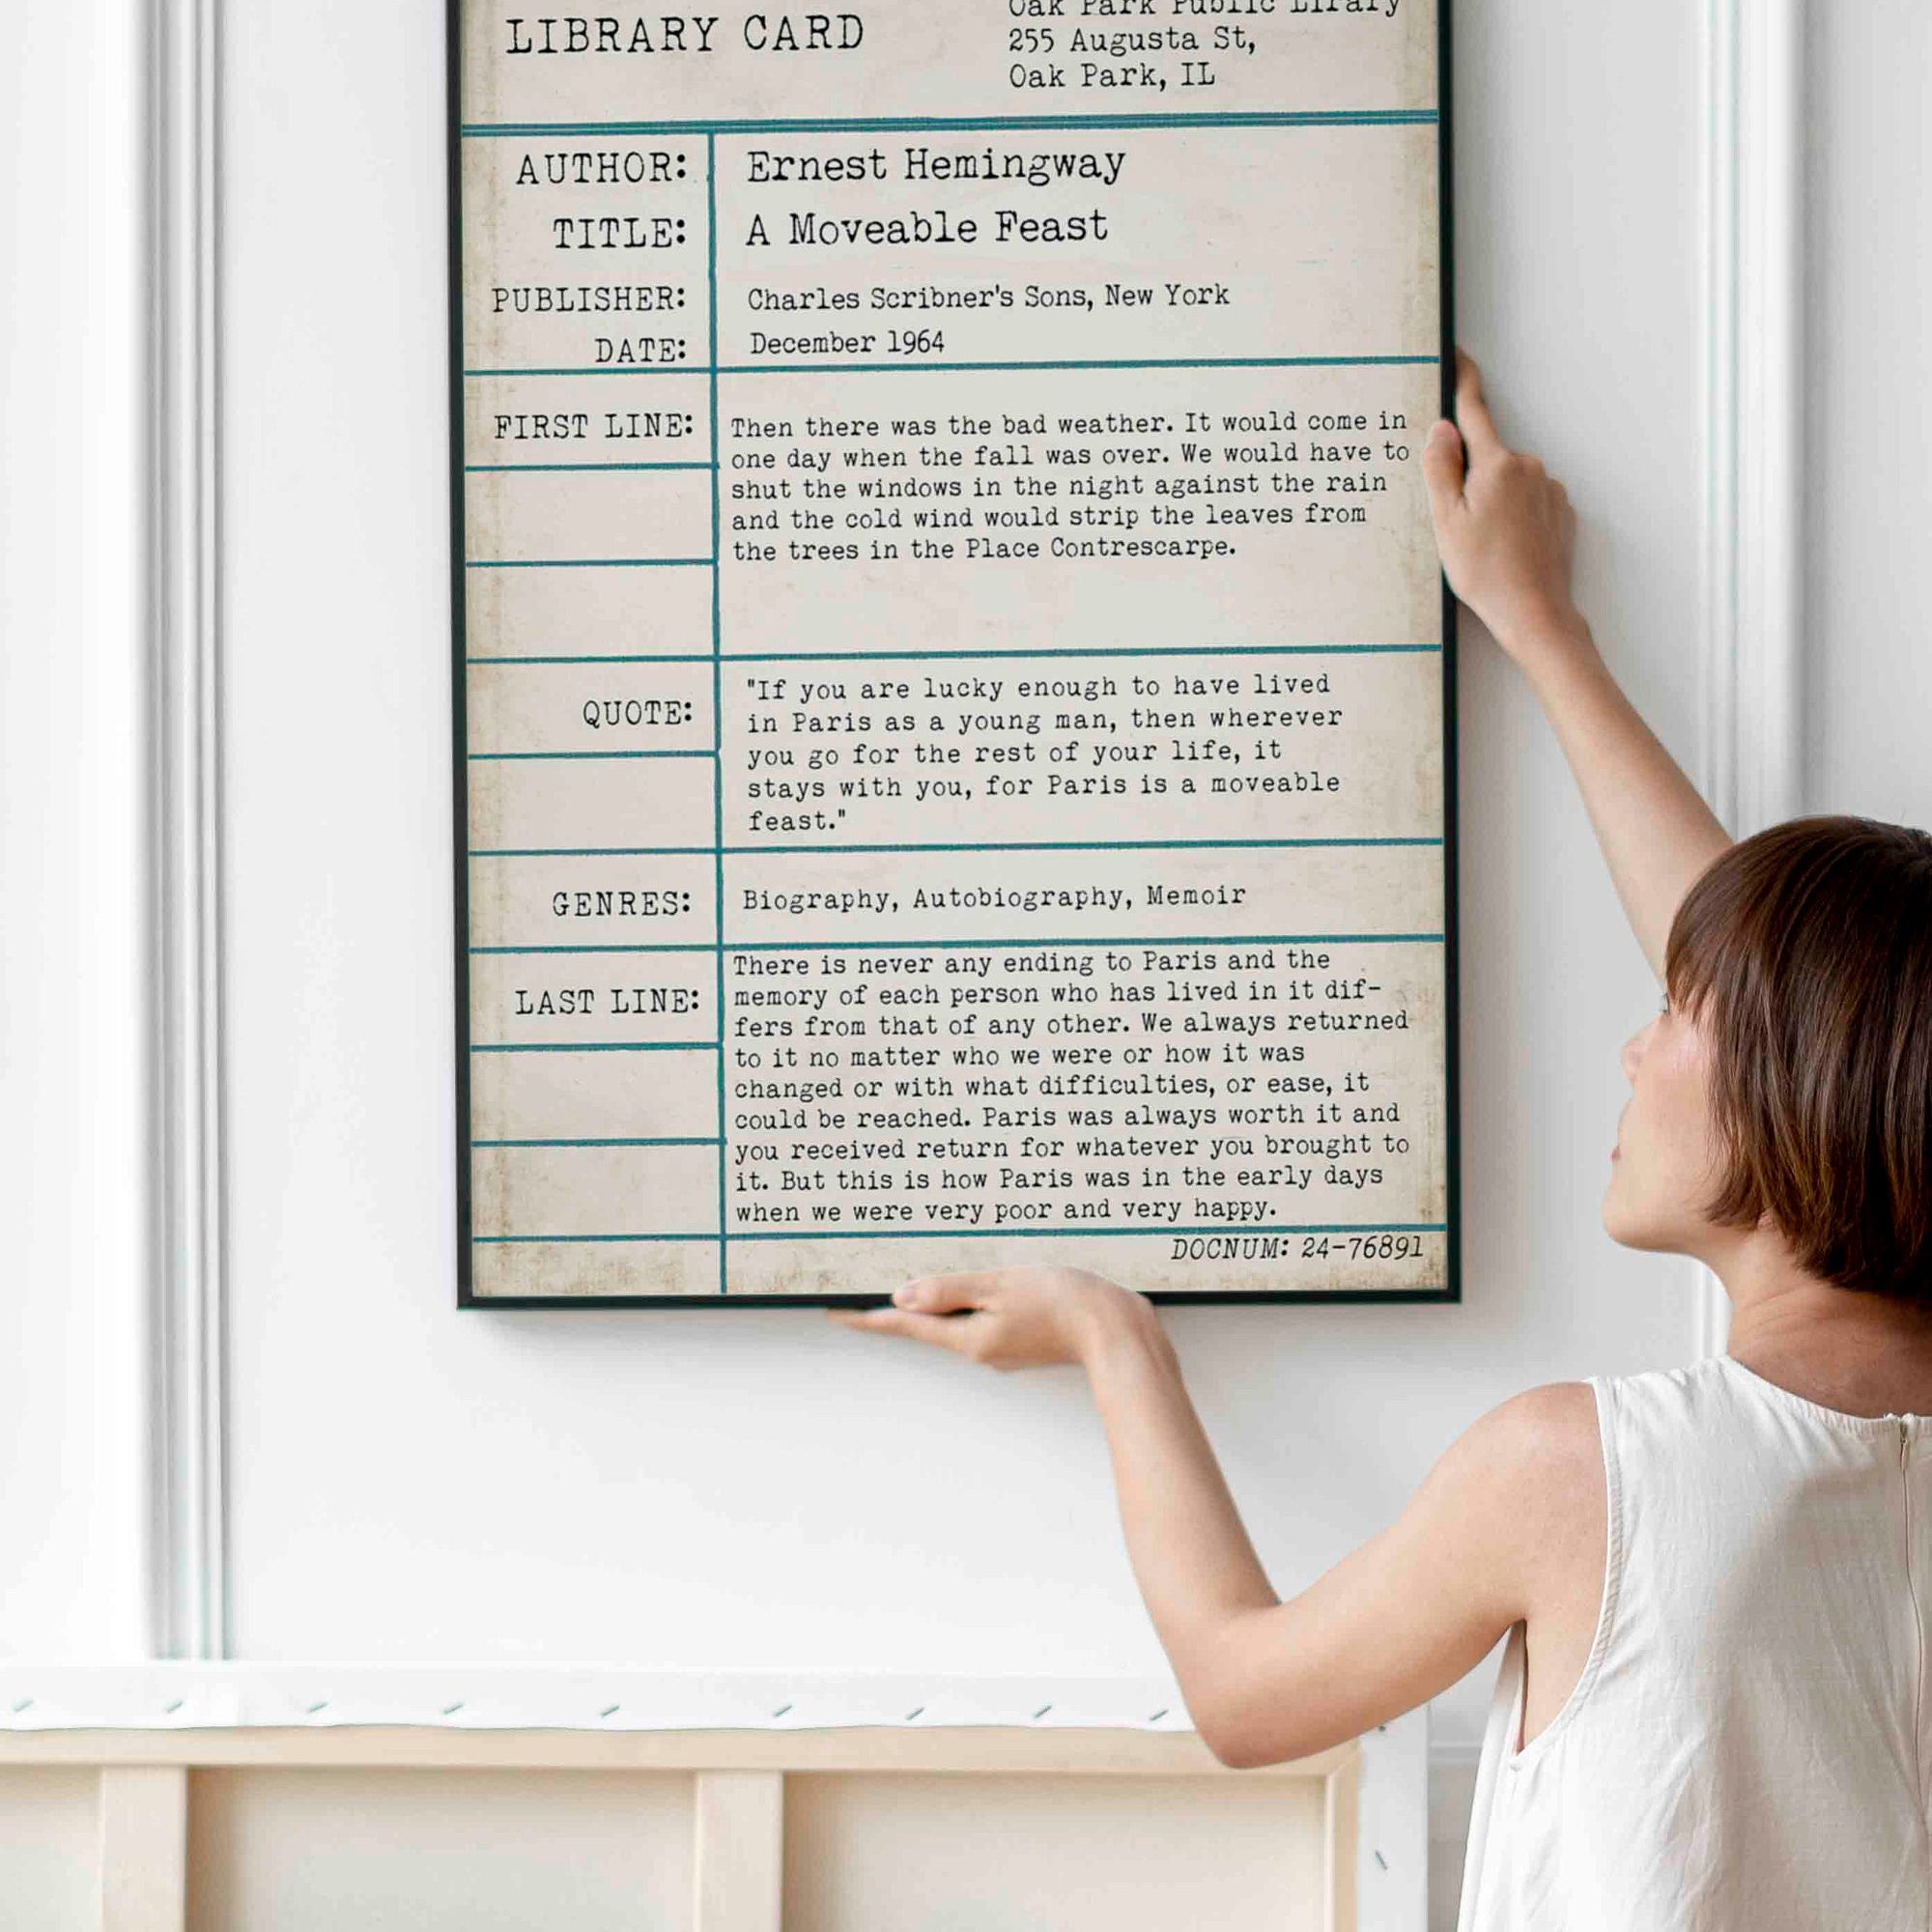 LIBRARY CARD
Oak Park Public Lirary
255 Augusta St,
Oak Park, IL
AUTHOR: Ernest Hemingway
TITLE: A Moveable Feast
PUBLISHER: Charles Scribner's Sons, New York
DATE: December 1964
FIRST LINE: Then there was the bad weather. It would come in
one day when the fall was over. We would have to
shut the windows in the night against the rain
and the cold wind would strip the leaves from
the trees in the Place Contrescarpe.
QUOTE: "If you are lucky enough to have lived
in Paris as a young man, then wherever
you go for the rest of your life, it
stays with you, for Paris is a moveable
feast."
GENRES: Biography, Autobiography, Memoir
LAST LINE: There is never any ending to Paris and the
memory of each person who has lived in it dif-
fers from that of any other. We always returned
to it no matter who we were or how it was
changed or with what difficulties, or ease, it
could be reached. Paris was always worth it and
you received return for whatever you brought to
it. But this is how Paris was in the early days
when we were very poor and very happy.
DOCNUM: 24-76891